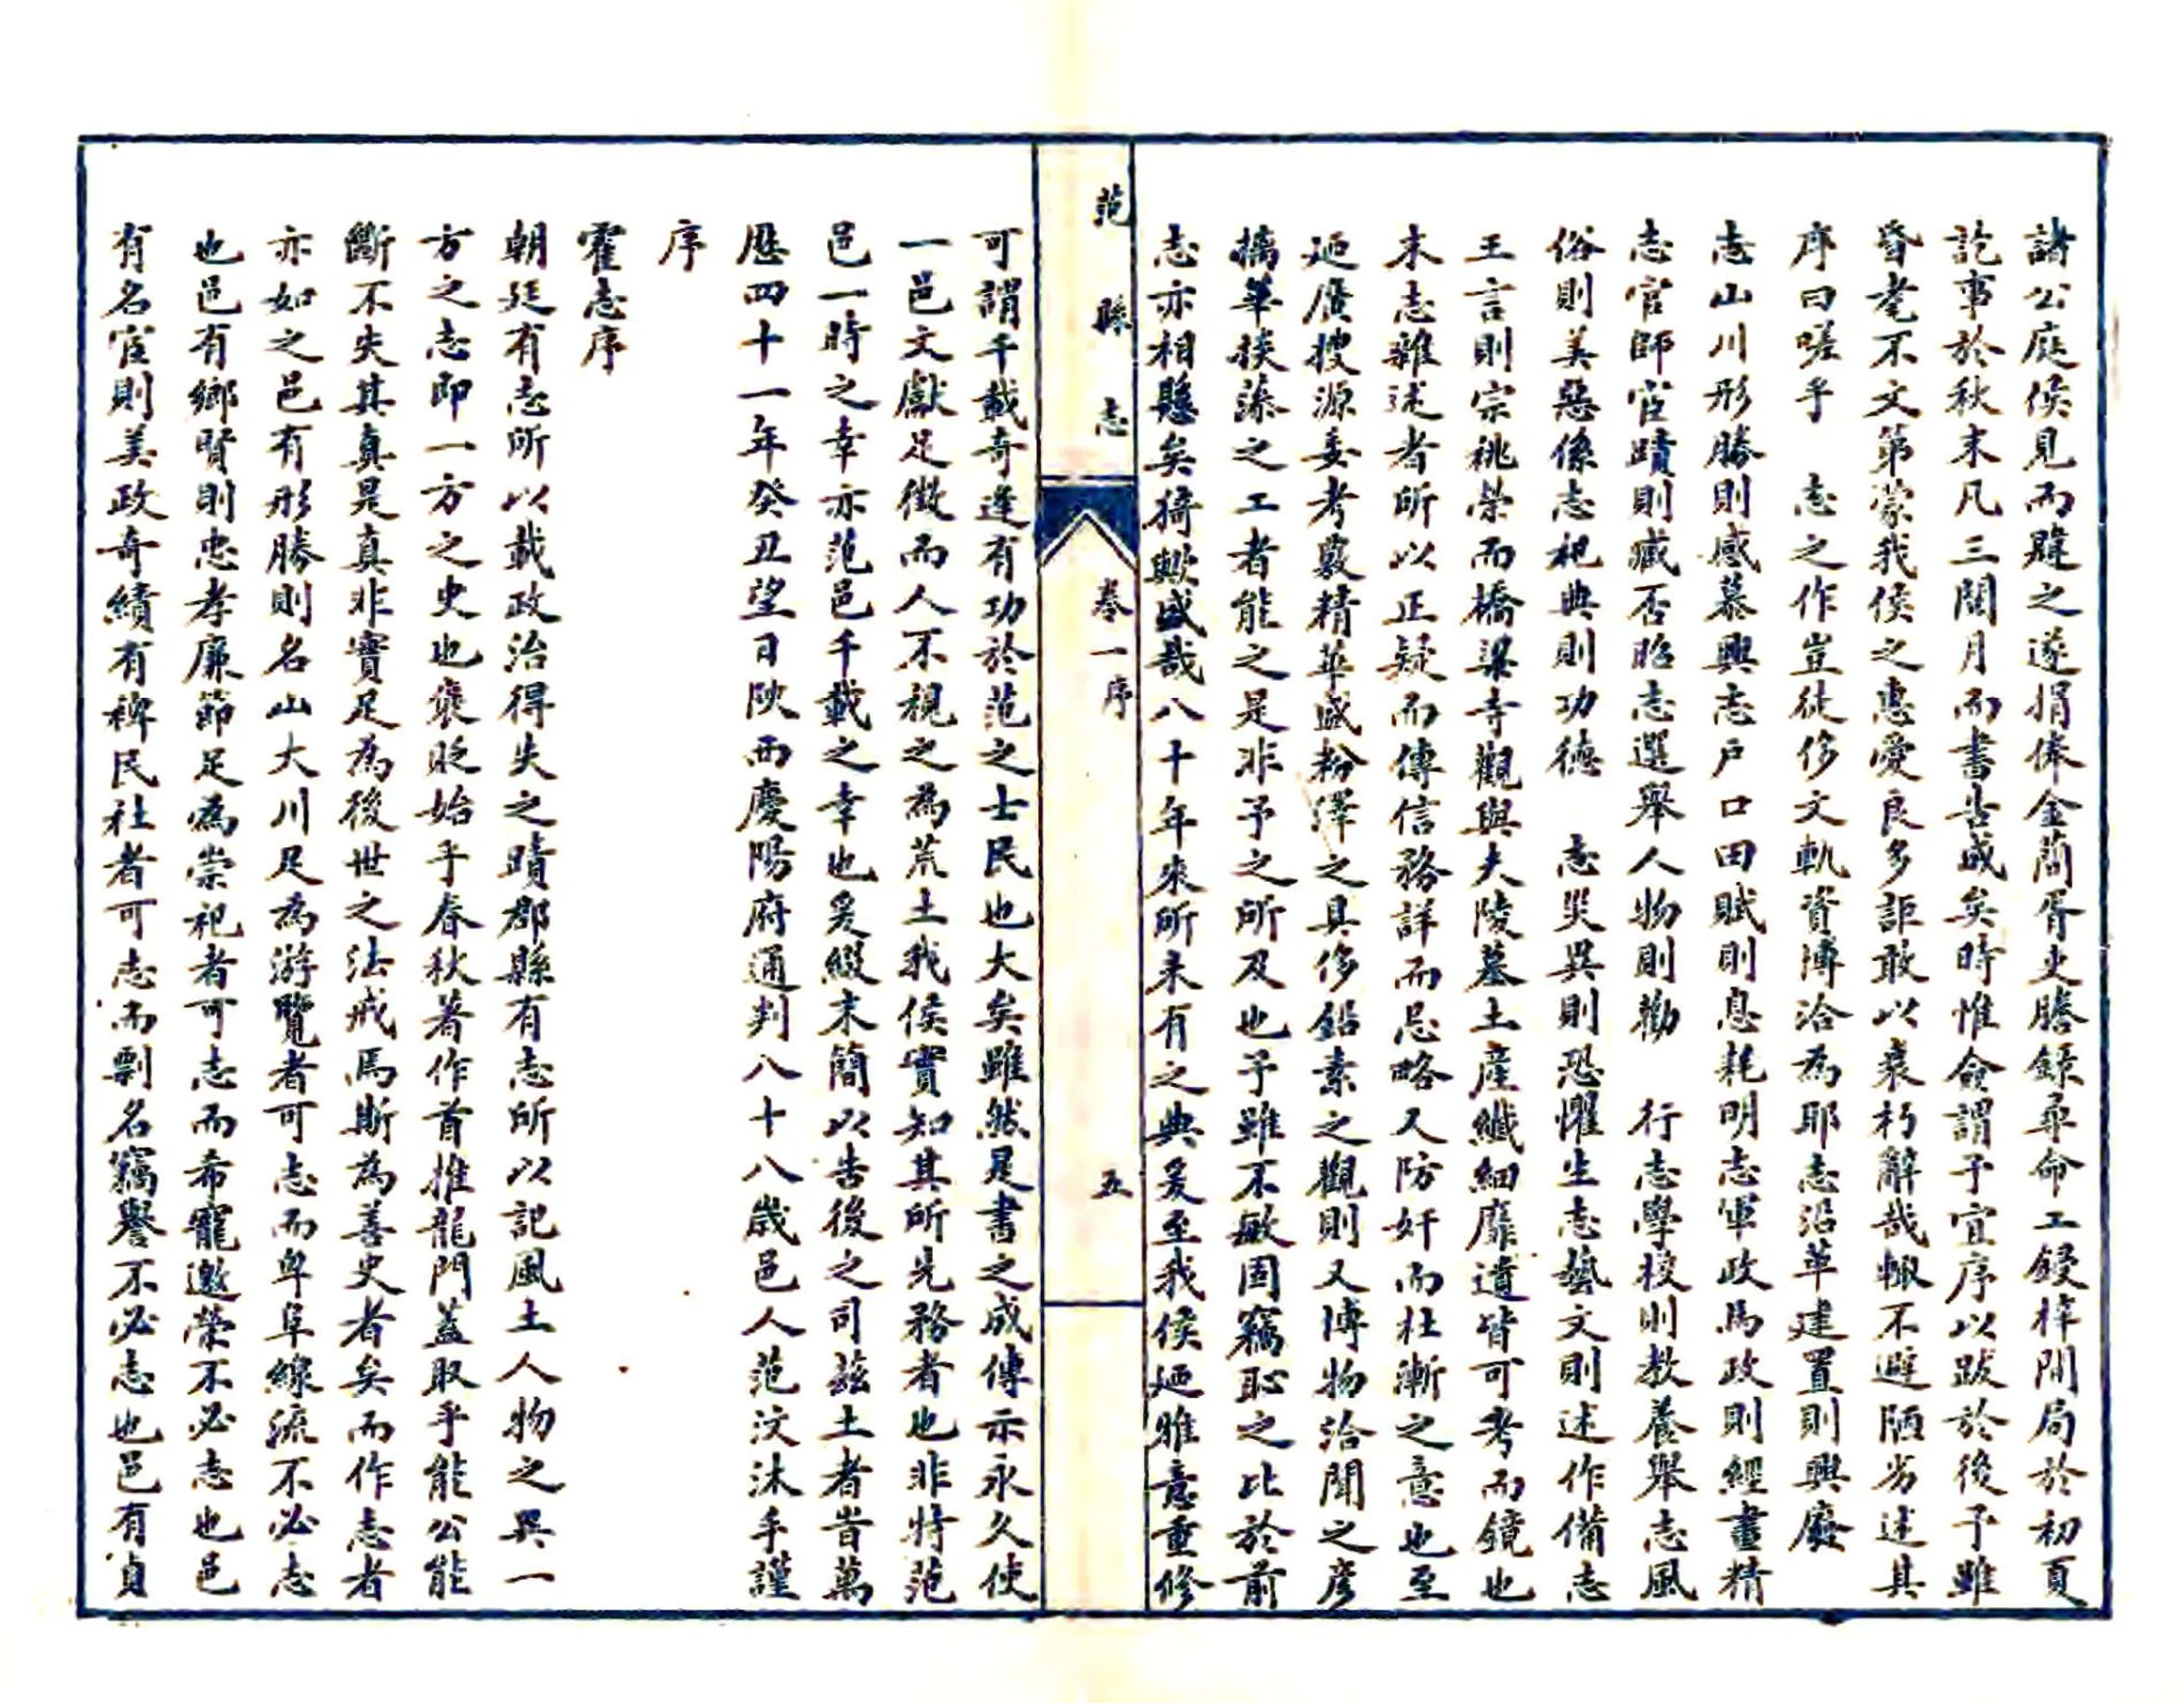 諸公庭侯見而韙之遂捐俸金簡胥史謄錄尋命工鋟梓開局於初夏
訖事於秋末凡三閱月而書告成矣時惟僉謂予宜序以跋於後予雖
昏耄不文第蒙我侯之惠愛良多詎敢以衰朽辭哉輙不避陋劣述其
序曰嗟乎 志之作豈徒侈文軌資博洽為耶志沿革建置則興廢
志山川形勝則感慕興志戶口田賦則息耗明志軍政馬政則經畫精
志官師宦蹟則臧否昭志選舉人物則勸 行志學校則教養舉志風
俗則美惡係志祀典則功德 志災異則恐懼生志藝文則述作備志
王言則宗祧榮而橋梁寺觀與夫陵墓土產纖細靡遺皆可考而鏡也
末志雜述者所以正疑而傳信務詳而忌略又防奸而杜漸之意也至
廼廣搜源委考覈精華盛粉澤之具侈鉛素之觀則又博物洽聞之彥
摛華掞藻之工者能之是非予之所及也予雖不敏固竊恥之比於前
志亦相懸矣猗歟盛哉八十年來所未有之典爰至我侯廼雅意重修
范縣志
卷一序
五
可謂千載奇逢有功於范之士民也大矣雖然是書之成傳示永久使
一邑文獻足徵而人不視之為荒土我侯實知其所先務者也非特范
邑一時之幸亦范邑千載之幸也爰綴末簡以告後之司茲土者旹萬
曆四十一年癸丑望日陝西慶陽府通判八十八歲邑人范汶沐手謹
序
霍志序
朝廷有志所以載政治得失之蹟郡縣有志所以記風土人物之異一
方之志即一方之史也褒貶始乎春秋著作首推龍門蓋取乎能公能
斷不失其真是真非實足為後世之法戒焉斯為善史者矣而作志者
亦如之邑有形勝則名山大川足為游覽者可志而卑阜線流不必志
也邑有鄉賢則忠孝廉節足為崇祀者可志而希寵邀榮不必志也邑
有名宦則美政奇績有裨民社者可志而剽名竊譽不必志也邑有貞